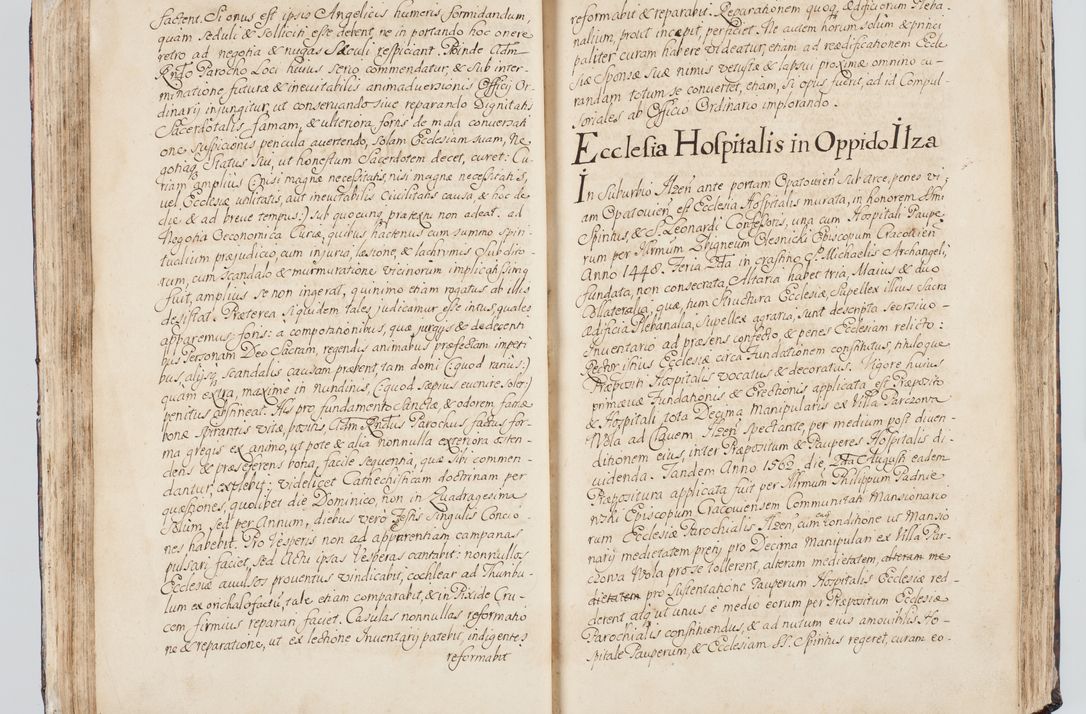 factent. Si onus est ipsis Angelicis humeris formidandum,
quam seduli & solliciti esse debent, ne in portando hoc onere
retro ad negotia & nugas Sæculi respiciant. Proinde Adm
Rndo Parocho Loci huius serio commendatur, & sub inter-
minatione futuræ & inevitabilis animadversionis Officij Or-
dinarij injungitur, ut conservando sive reparando Dignitatis
Sacerdotalis famam, & ulteriora foris de mala conversati
one suspicionis pericula avertendo, solam Ecclesiam suam, Ne
gotiaq Status sui, ut honestum Sacerdotem decet, curet: Cu
riam amplius (nisi magnæ necessitatis, nisi magnæ necessitatis,
vel Ecclesiæ utilitatis, aut inevitabilis Civilitatis causa, & hoc de
die & ad breve tempus:) sub quocunq prætextu non adeat. ad
Negotia Oeconomica Curiæ, quibus hactenus cum summo spiri
tualium præjudicio, cum injuria, læsione, & lachrymis Subdito-
rum, cum scandalo & murmuratione vicinorum implicatissimq
fuit, amplius se non ingerat, quinimo etiam rogatus ab illis
desistat. Præterea siquidem tales judicamur esse intus, quales
apparemus foris: a compotationibus, quæ jurgijs & dedecenti
bus Personam Deo Sacram, regendis animabus præfectam imperi
bus, alijsq scandalis causam præbent, tam domi (:quod rarius:)
quam extra, maxime in nundinis, (:quod sæpius evenire solet:)
penitus abstineat. His pro fundamento Sanctæ, & odorem famæ
bonæ spirantis vitæ, positis, Adm Rndus Parochus factus for
ma gregis ex animo, ut pote & alia nonnulla exteriora osten-
dens & præseferens bona, facile sequentia, quæ sibi commen-
dantur, explebit: videlicet Cathechisticam doctrinam per
quæstiones, quolibet die Dominico, non in Quadragesima
solum, sed per Annum, diebus vero Festis singulis Concio-
nes habebit. Pro Vesperis non ad apparentiam campanas
pulsari faciet, sed Actu ipsas Vesperas cantabit: nonnullos
Ecclesiæ avulsos proventus vindicabit, cochlear ad Thuribu-
lum ex orichalo factū, tale etiam comparabit, & in Pixide Cru-
cem firmius reparari faciet. Casulas nonnullas reformatio
ne & reparatione, ut ex lectione Inventarij patebit, indigentes
reformabit
reformabit & reparabit. Reparationem quoq ædificiorum Pleba-
nalium, prout incæpit, perficiet. Ne autem horum solum & princi
paliter curam habere videatur, etiam ad reædificationem Eccle
siæ Sponsæ Suæ nimis vetustæ & lapsui proximæ omnino cu-
randam totum se convertet, etiam, si opus fuerit, ad id Compul-
soriales ab Officio Ordinario implorando.
Ecclesia Hospitalis in Oppido Ilza
In Suburbio Ilzen ante portam Opatovien sub arce, penes vi
am Opatovien est Ecclesia Hospitalis murata, in honorem Smi
Spiritus, & S. Leonardi Confessoris, una cum Hospitali Paupe-
rum per Illrmum Zbigneum Olesnicki Episcopum Cracovien
Anno 1448. Feria 2da in crastino S. Michaelis Archangeli,
fundata, non consecrata. Altaria habet tria, Maius & duo
Collateralia, quæ, tum structura Ecclesiæ, supellex illius sacra
ædificia Plebanalia, supellex agraria, sunt descripta seorsivo
Inventario ad præsens confecto, & penes Ecclesiam relicto:
Rector istius Ecclesiæ circa Fundationem constitutus, tituloque
Præpositi Hospitalis vocatus & decoratus. Vigore huius
primævæ Fundationis & Erectionis applicata est Præposito
& Hospitali tota Decima Manipularis ex Villa Parczowa
Wola ad Clavem Ilzen spectante, per medium post diven-
ditionem eius, inter Præpositum & Pauperes Hospitalis di-
videnda. Tandem Anno 1562. die 2da Augusti eadem
Præpositura applicata fuit per Illrmum Philippum Padnie
wski Episcopum Cracoviensem Communitati Mansionario
rum Ecclesiæ Parochialis Ilzen, cum ea Conditione ut Mansio
narij medietatem pretij pro Decima Manipulari ex Villa Par-
czowa Wola pro se tollerent, alteram medietatem, alteram me
dietatem pro sustentatione Pauperum Hospitalis Ecclesiæ red-
derent, atq ut unus e medio eorum per Præpositum Ecclesiæ
Parochialis constituendus, & ad nutum eius amovibilis Ho-
spitale Pauperum, & Ecclesiam SS. Spiritus regeret, curam eo-